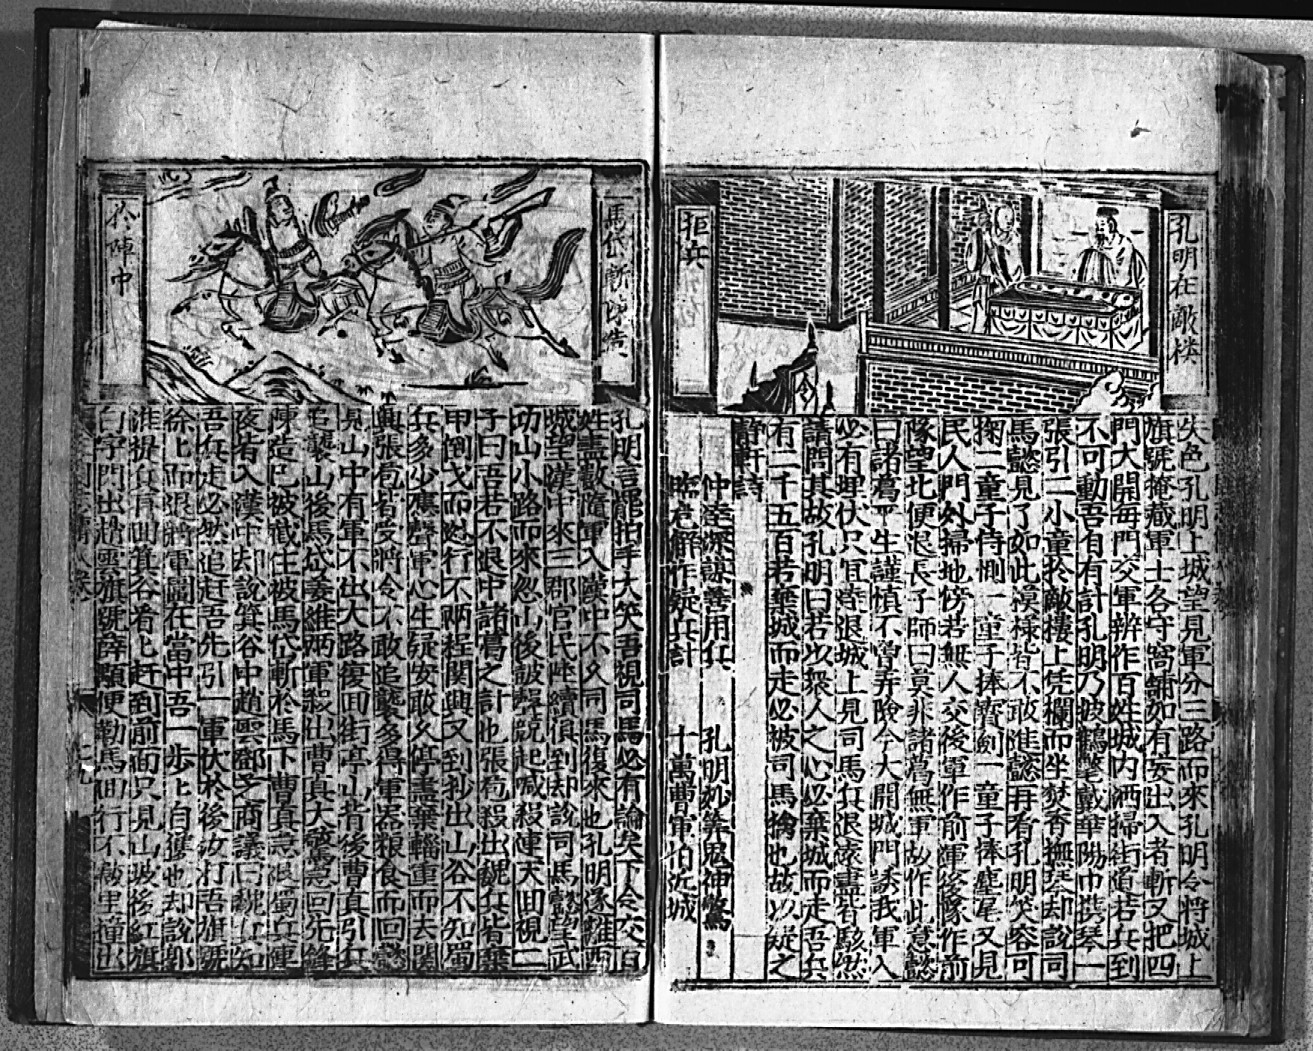 孔明在敵楼
拒兵
失色孔明上城望見軍分三路而來孔明令將城上
旗號掩藏軍士各守窩鋪如有妄出入者斬又把四
門大開每門交軍辨作百姓城内洒掃街道若兵到
不可動吾自有計孔明乃披鶴氅戴華陽巾携琴一
張引二小童於敵樓上凭欄而坐焚香撫琴却說司
馬懿見了如此模樣皆不敢進懿再看孔明笑容可
掬二童子侍側一童子捧寶劍一童子捧麈尾又見
民人門外掃地傍若無人交後軍作前軍後隊作前
隊望北便退長子師曰莫非諸葛無軍故作此意懿
曰諸葛平生謹慎不曾弄險今大開城門誘我軍入
必有埋伏只宜速退城上見司馬兵退遠盡皆駭然
請問其故孔明曰若以衆人之心必棄城而走吾兵
有二千五百若棄城而走必被司馬擒也故以疑之
静軒詩
仲達深謀善用兵 孔明妙算鬼神驚
臨危解作疑兵計 十萬曹軍怕近城
馬岱斬陳造
於陣中
孔明言罷拍手大笑吾視司馬必有論矣下令交百
姓盡數隨軍入漢中不久司馬復來也孔明遂離西
城望漢中來三郡官民陸續俱到却說司馬懿望武
功山小路而來忽山後鼓聲競起喊殺連天回視二
子曰吾若不退中諸葛之計也張苞殺出魏兵皆棄
甲倒戈而逃行不兩程関興又到抄出山谷不知蜀
兵多少應聲軍心生疑安敢久停盡棄輜重而去関
興張苞皆受將令不敢追襲多得軍器粮食而回懿
見山中有軍不出大路復回街亭山背後曹真引兵
追襲山後馬岱姜維两軍殺出曹真大驚急回先鋒
陳造已被截住被馬岱斬於馬下曹真急退蜀兵連
夜皆入漢中却說箕谷中趙雲鄧芝商議曰魏兵知
吾兵走必然追赶吾先引一軍伏於後汝打吾旗號
徐上而退將軍圖在當中吾一步上自護也却說郭
淮提兵再回箕谷看七赶到前面只見山坡後紅旗
白字閃出趙雲旗號薛顒便勒馬回行不数里撞出